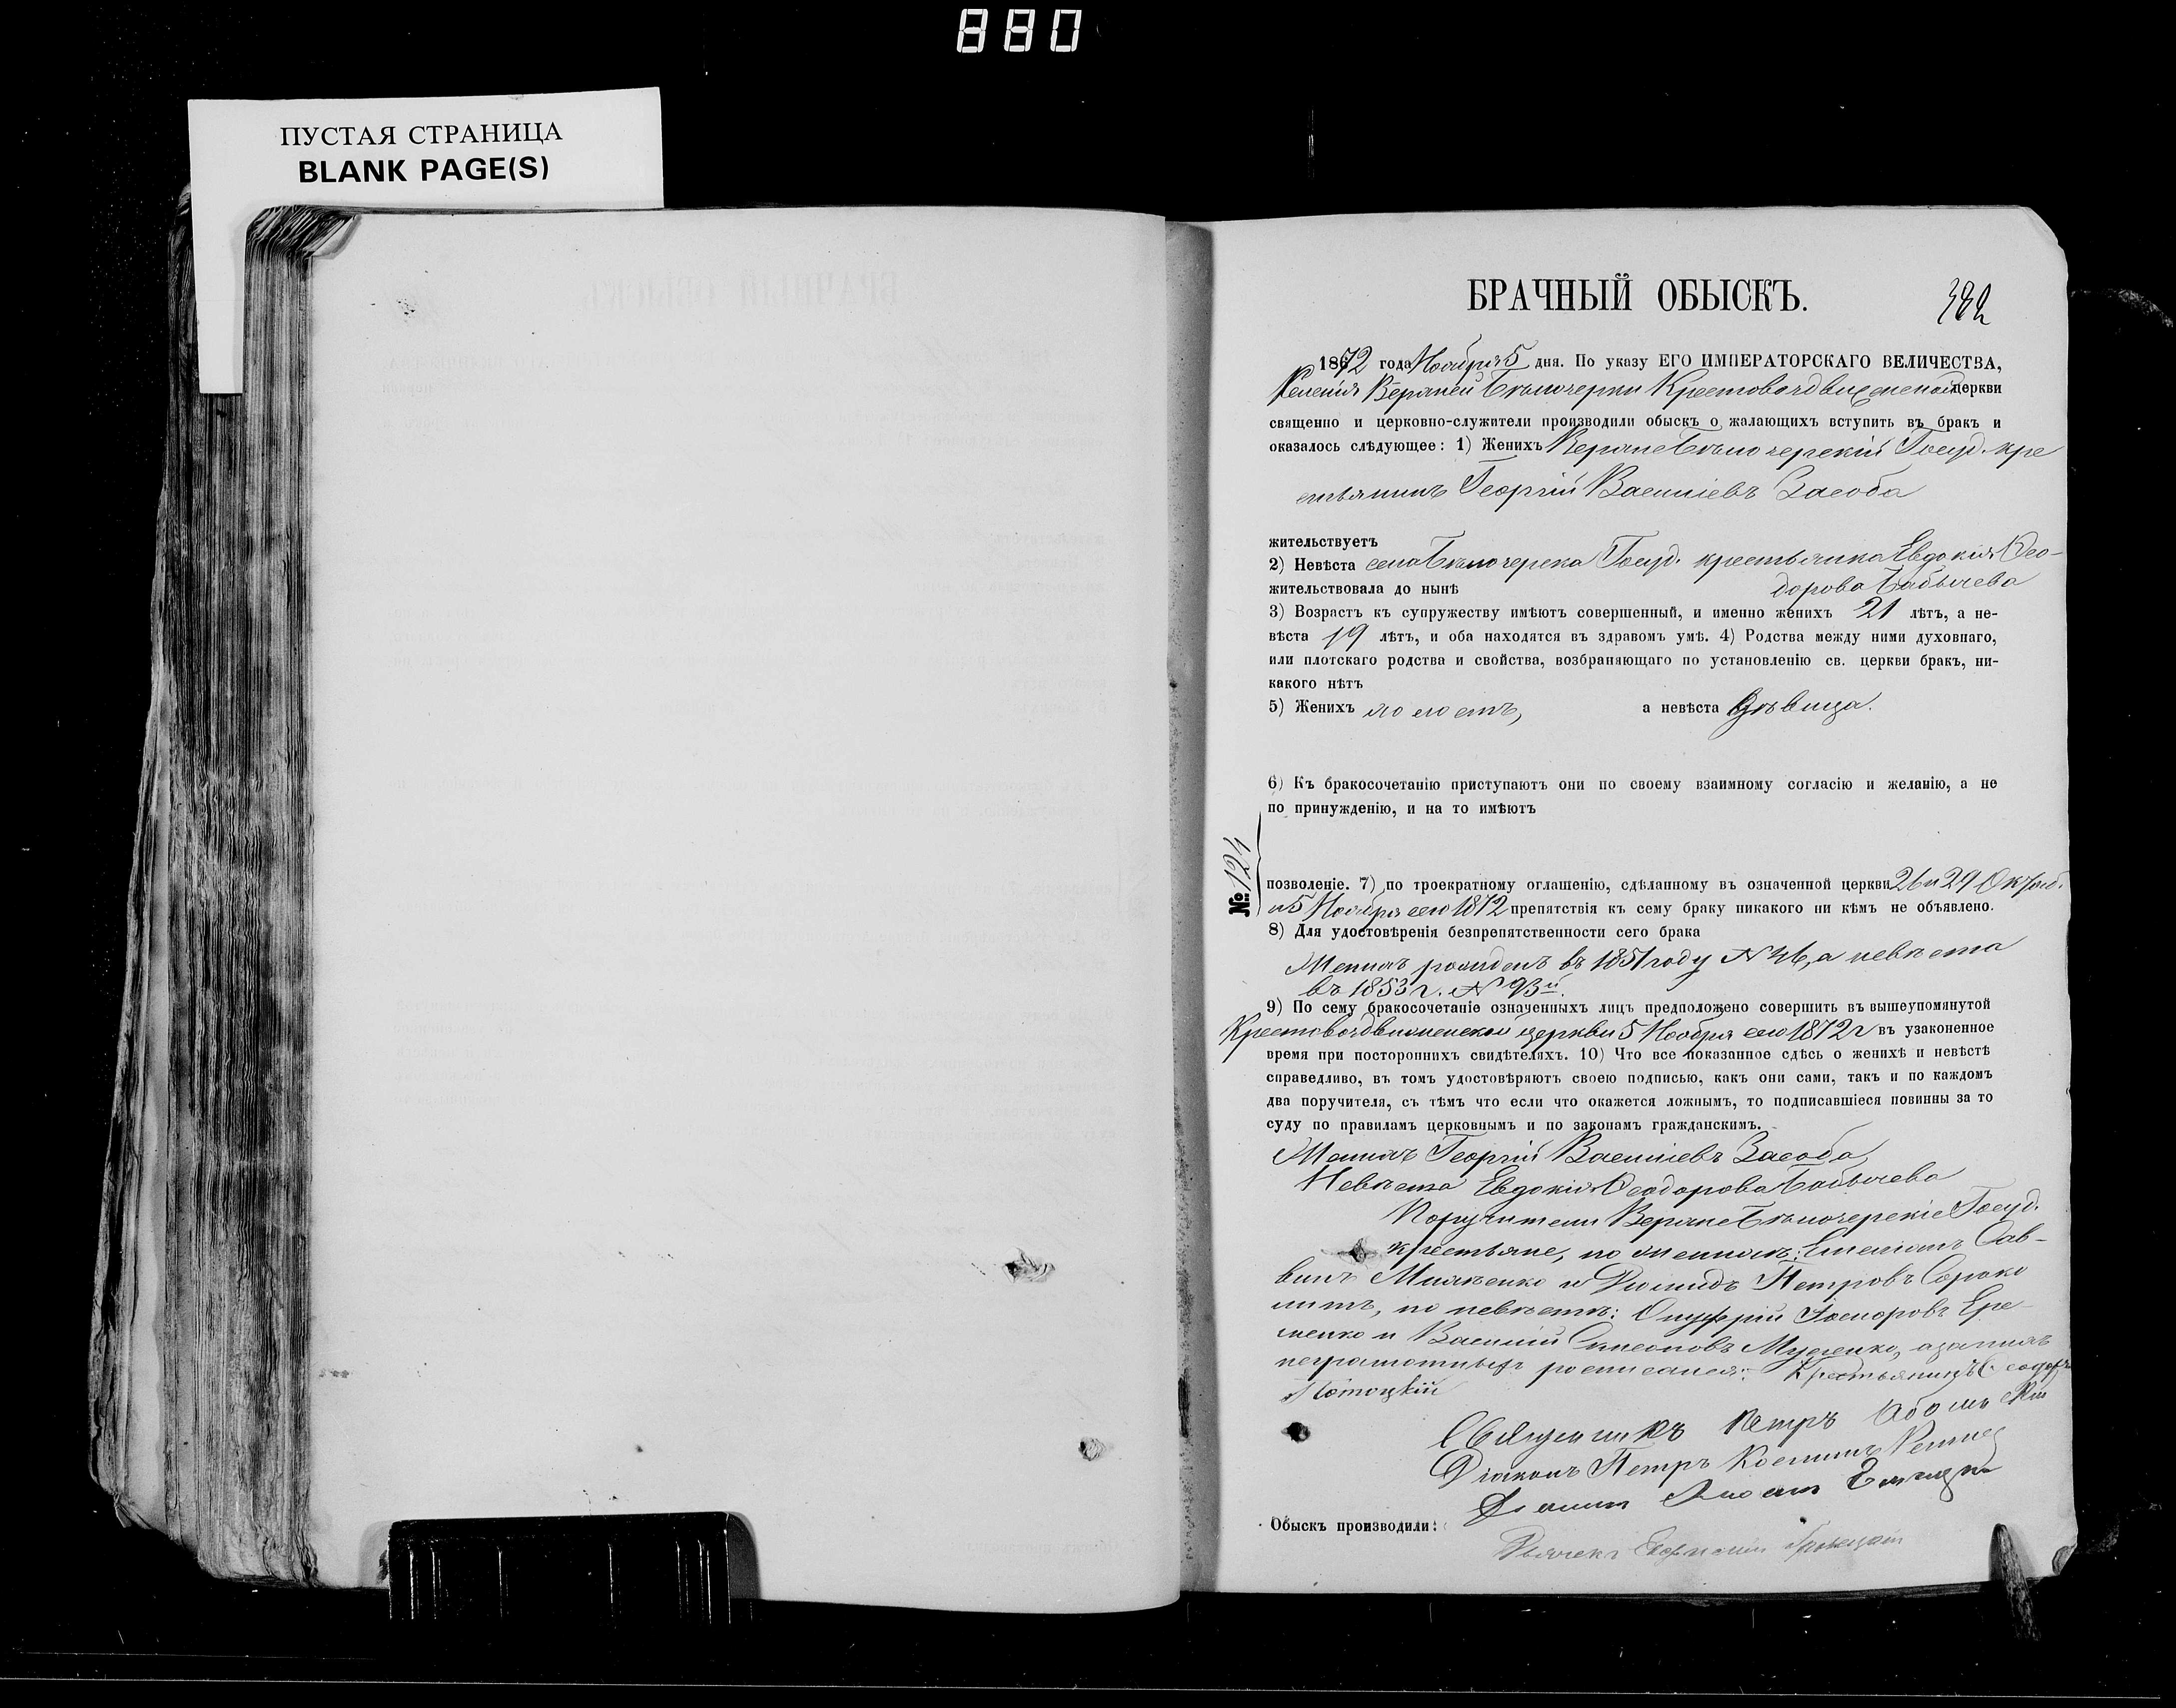 880
ПУСТАЯ СТРАНИЦА
BLANK PAGE(S)
БРАЧНЫЙ ОБЫСКЪ.
382
1872 года Ноября 5 дня. По указу ЕГО ИМПЕРАТОРСКАГО ВЕЛИЧЕСТВА,
Селенія Верхней Бѣлозерки Крестовоздвиженской церкви
священно и церковно-служители производили обыскъ о жалающихъ вступить въ бракъ и
оказалось слѣдующее: 1) Женихъ Верхнебѣлозерскій Госуд. кре
стьянинъ Георгій Василіевъ Засоба
жительствуетъ
2) Невѣста села Бѣлозерска Госуд. крестьянка Евдокія Ѳео-
жительствовала до нынѣ дорова Бабычева
3) Возрастъ къ супружеству имѣютъ совершенный, и именно женихъ 21 лѣтъ, а не-
вѣста 19 лѣтъ, и оба находятся въ здравомъ умѣ. 4) Родства между ними духовнаго,
или плотскаго родства и свойства, возбраняющаго по установленію св. церкви бракъ, ни-
какого нѣтъ
5) Женихъ холостъ, а невѣста дѣвица.
6) Къ бракосочетанію приступаютъ они по своему взаимному согласію и желанію, а не
по принужденію, и на то имѣютъ
№ 124
позволеніе. 7) по троекратному оглашенію, сдѣланному въ означенной церкви 26 и 29 Октяб.
и 5 Ноября сего 1872 препятствія къ сему браку никакого ни кѣмъ не объявлено.
8) Для удостовѣренія безпрепятственности сего брака
Женихъ рожденъ въ 1851 году № 46, а невѣста
въ 1853 г. № 93й.
9) По сему бракосочетаніе означенныхъ лицъ предположено совершить въ вышеупомянутой
Крестовоздвиженской церкви 5 Ноября сего 1872 г въ узаконенное
время при постороннихъ свидѣтеляхъ. 10) Что все показанное сдѣсь о женихѣ и невѣстѣ
справедливо, въ томъ удостовѣряютъ своею подписью, какъ они сами, такъ и по каждомъ
два поручителя, съ тѣмъ что если что окажется ложнымъ, то подписавшіеся повинны за то
суду по правиламъ церковнымъ и по законамъ гражданскимъ.
Женихъ Георгій Василіевъ Засоба
Невѣста Евдокія Ѳеодорова Бабычева
Поручители Верхнебѣлозерскіе Госуд.
крестьяне, по женихѣ: Емеліанъ Сав-
винъ и Діомидъ Петровъ Сороко
литъ, по невѣстѣ: Онуфрій Ере-
менко и Василій Симеоновъ Музенко, а за нихъ
неграмотныхъ росписался: Крестьянинъ Ѳеодоръ
Потоцкій
Священникъ Петръ
Діаконъ Петръ Косминъ
Обыскъ производили:
Дьячекъ